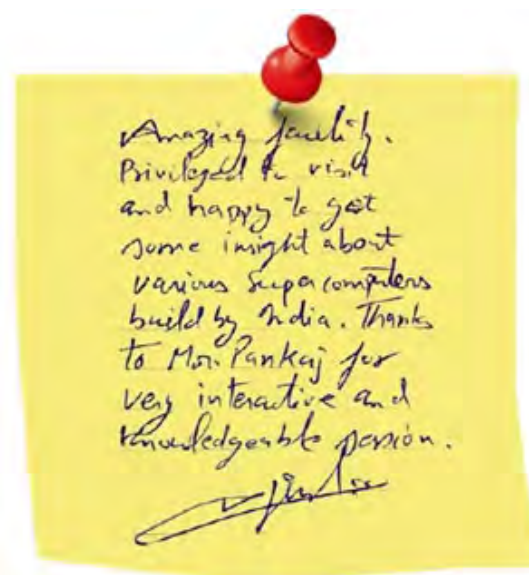 Amazing facility.
Privileged to visit
and happy to get
some insight about
various supercomputers
build by India. Thanks
to Mr. Pankaj for
very interactive and
knowledgeable passion.